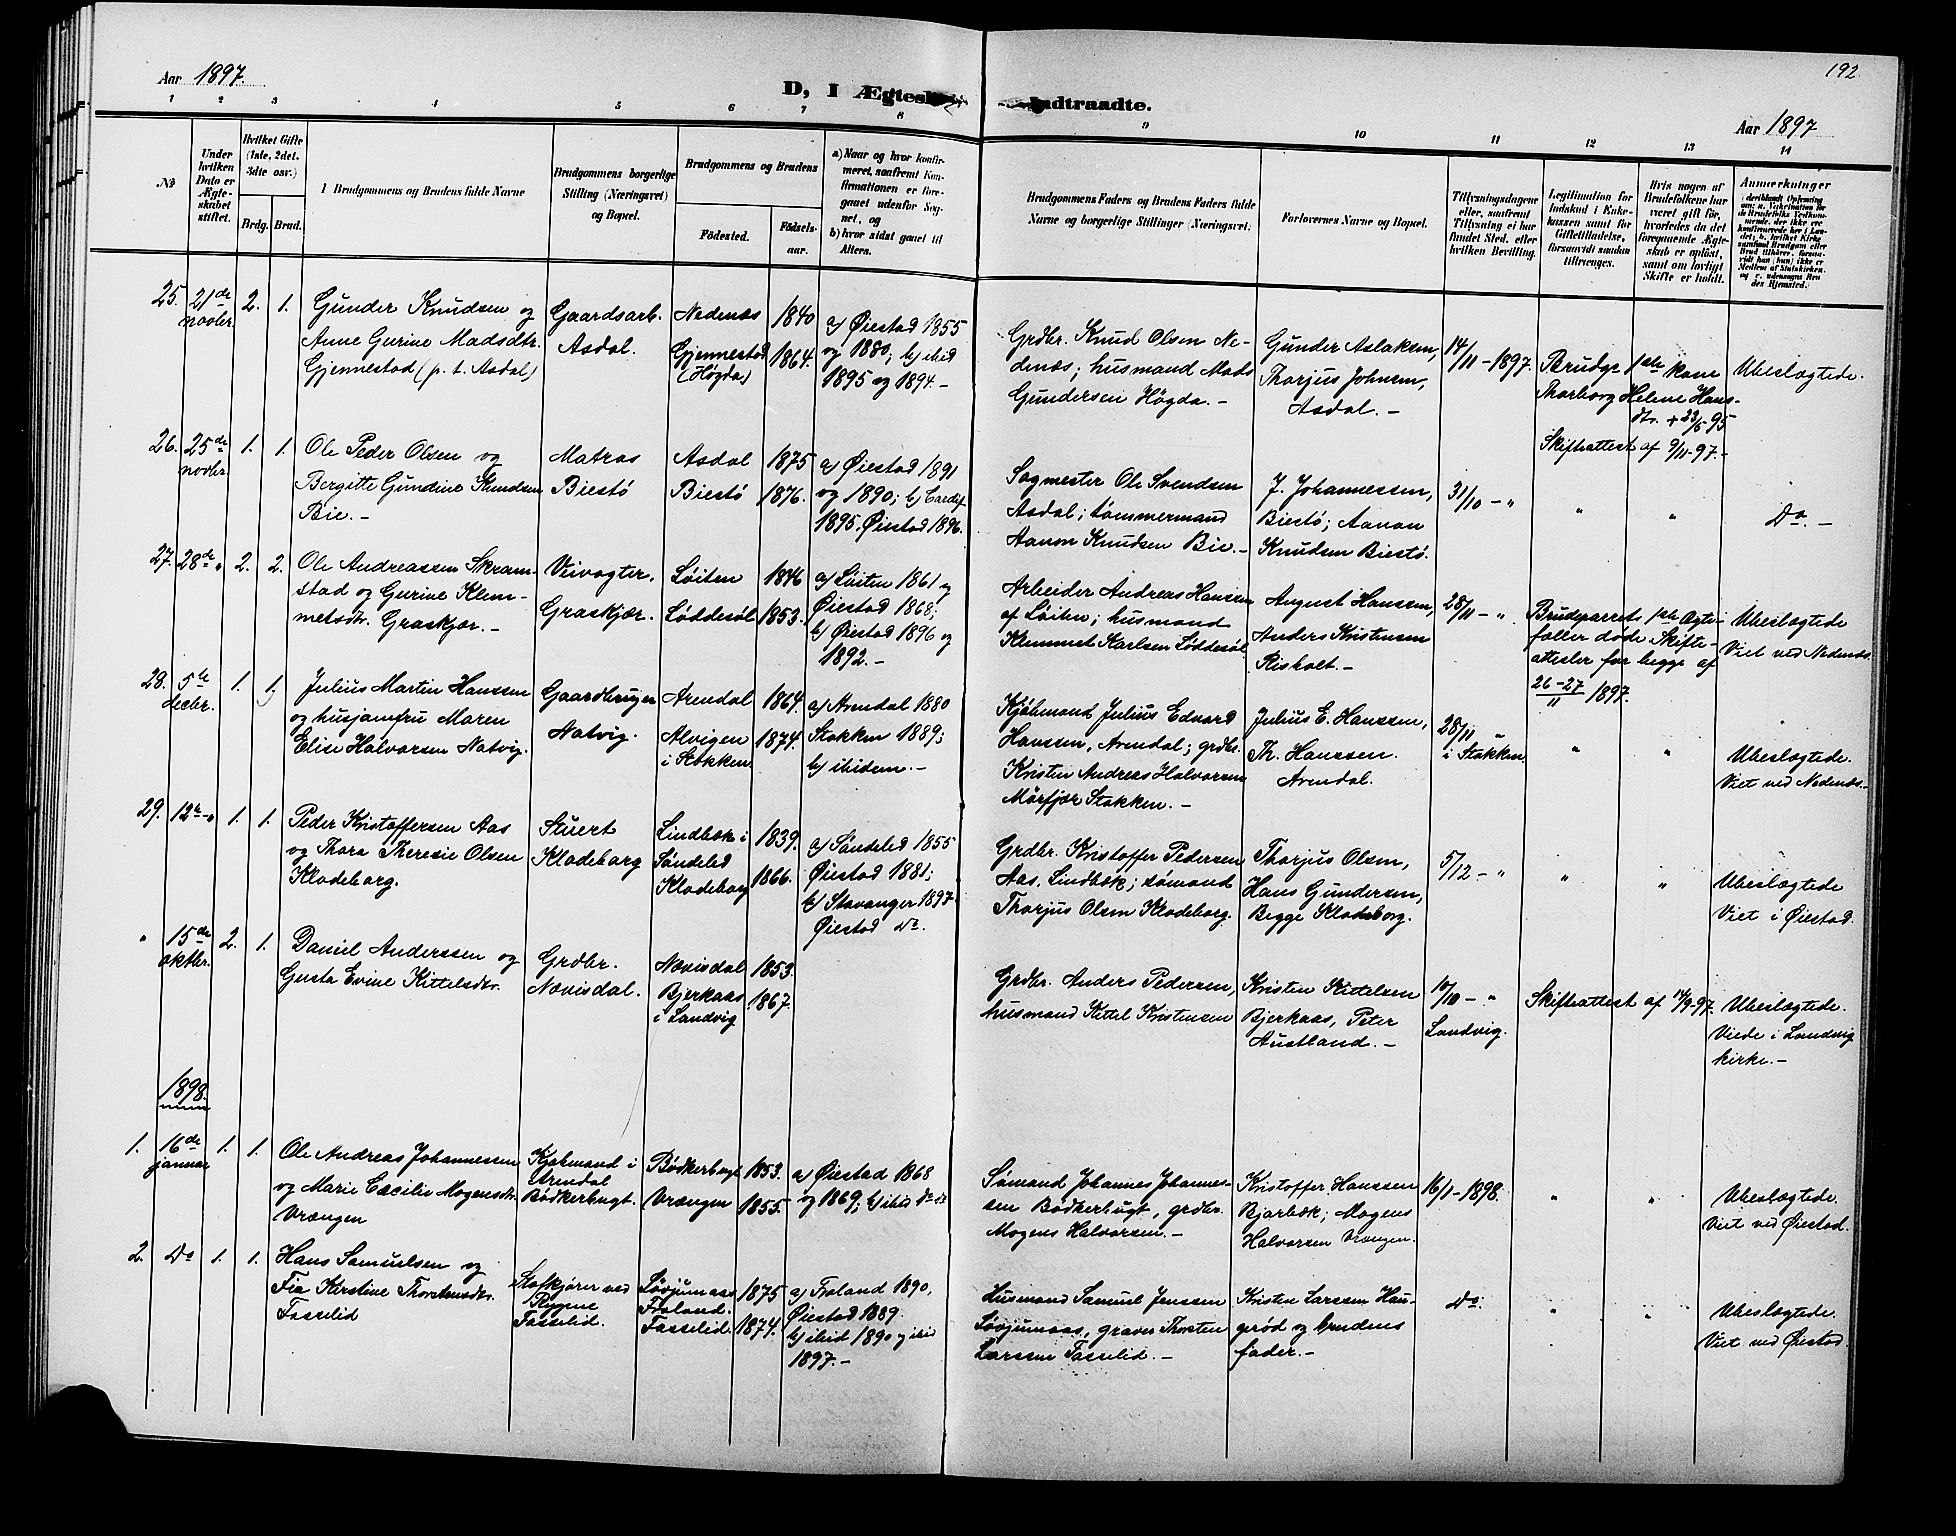 Aar 1897.
192
D, I Ægtes
Indtraadte.
Aar 1897
1 2 3 4 5 6 7 8 9 10 11 12 13 14
No
Under hvilken Dato er Ægteskabet stiftet.
Hvilket Gifte (1ste, 2det, 3dte osv.)
Brdg. Brud.
Brudgommens og Brudens fulde Navne
Brudgommens borgerlige Stilling (Næringsvei) og Bopæl.
Brudgommens og Brudens
Födested.
Födselsaar.
a) Naar og hvor konfirmeret, saafremt Konfirmationen er foregaaet udenfor Sognet, og
b) hvor sidst gaaet til Alters.
Brudgommens Faders og Brudens Faders fulde Navne og borgerlige Stillinger (Næringsvei).
Forlovernes Navne og Bopæl.
Tillysningsdagene eller, saafremt Tillysning ei har fundet Sted, efter hvilken Bevilling.
Legitimation for Indskud i Enkekassen samt for Giftetilladelse, forsaavidt saadan tiltrænges.
Hvis nogen af Brudefolkene har været gift för, hvorledes da det foregaaende Ægteskab er oplöst, samt om lovligt Skifte er holdt.
Anmerkninger
25. 21de novbr. 2. 1.
Gunder Knudsen og
Anne Gurine Madsdtr.
Gjennestad (p. t. Asdal)
Gaardsarb.
Asdal.
Nedenæs 1840
Gjennestad 1864.
(Høgda)
a) Øiestad 1855
og 1880; b) ibid
1895 og 1894.-
Grdbr. Knud Olsen Ne-
denæs; husmand Mads
Gundersen Høgda.-
Gunder Aslaksen,
Thorjus Johnsen,
Asdal.-
14/11-1897.
Brudgs 1ste kone
Thorborg Helene Hans-
dtr. + 23/5-95
Skifteattest af 9/11-97.-
Ubeslægtede.
26. 25de novbr. 1. 1.
Ole Peder Olsen og
Bergitte Gundine Knudsen
Bie.-
Matros
Biestø
Asdal 1875
Biestø 1876.
a) Øiestad 1891
og 1890; b) Cardif
1895. Øiestad 1896.
Sagmester Ole Svendsen
Asdal; tømmermand
Aanon Knudsen Bie.-
J. Johannessen,
Biestø; Aanon
Knudsen Biestø.
31/10-"
" "
Do.-
27. 28de " 2. 2.
Ole Andreassen Skram-
stad og Gurine Klem-
metsdtr. Graskjær.-
Veivogter.
Graskjær.
Løiten 1846
Løddesøl 1853.
a) Løiten 1861 og
Øiestad 1868;
b) Øiestad 1896 og
1892.-
Arbeider Andreas Hansen
af Løiten; husmand
Klemmet Karlsen Løddesøl
August Hanssen,
Anders Kristensen
Risholt.-
28/11-".
Brudeparrets 1ste Ægte-
fæller døde. Skifte-
attester for begge af
26-27/11 1897.
Ubeslægtede
Viet ved Nedenæs.
28. 5te decbr. 1. 1.
Julius Martin Hanssen
og husjomfru Maren
Elise Halvorsen Natvig.
Gaardbruger
Natvig.
Arendal 1864.
Alvigen 1874.
i Stokken
a) Arendal 1880
Stokken 1889;
b) ibidem.-
Kjøbmand Julius Edvard
Hanssen, Arendal; grdbr.
Kristen Andreas Halvorsen
Mørfjær Stokken.-
Julius E. Hanssen,
Th. Hanssen.
Arendal.
28/11 "
i Stokken
" "
Ubeslægtede.
Viet ved Nedenæs.-
29. 12te-" 1. 1.
Peder Kristoffersen Aas
og Thora Theresie Olsen
Klodeborg.
Stuert
Klodeborg
Lindbæk i 1839.
Søndeled
Klodeborg 1866.
a) Søndeled 1855
Øiestad 1881;
b) Stavanger 1897.
Øiestad Do.
Grdbr. Kristoffer Pedersen
Aas, Lindbæk; sømand
Thorjus Olsen Klodeborg.
Thorjus Olsen,
Hans Gundersen,
Begge Klodeborg.
5/12-"
" "
Ubeslægtede
Viet i Øiestad.
" 15de oktbr. 2. 1.
Daniel Anderssen og
Gusta Evine Kittelsdtr.
Grdbr.
Nævisdal.
Nævisdal 1853.
Bjerkaas 1867.
i Landvig
Grdbr. Anders Pedersen,
husmand Kittel Kristensen
Kristen Kittelsen
Bjerkaas, Peter
Austland.-
10/10-"
Landvig.
Skifteattest af 14/9 97.
Ubeslægtede.
Viede i Landvig
kirke.-
1898.
1. 16de januar 1. 1.
Ole Andreas Johannessen
og Marie Cæcilie Mogensdtr.
Vrængen
Kjøbmand i
Arendal
Bødkerbugt.
Bødkerbugt 1853.
Vrængen 1855.
a) Øiestad 1868
og 1869; b) ibid do do
Sømand Johannes Johannes-
sen Bødkerbugt, grdbr.
Mogens Halvorsen.-
Kristoffer Hanssen
Bjorbæk; Mogens
Halvorsen Vrængen.
16/1-1898.
" "
Ubeslægtede.
Viet ved Øiestad.
2. Do 1. 1.
Hans Samuelsen og
Fia Kirstine Thorstensdtr.
Fasselid
ved
Rygene
Fasselid.
Løvjumaas 1875
Froland.
Fasselid. 1874.
a) Froland 1890,
Øiestad 1889.
b) ibid 1890 og ibid
1897.-
Husmand Samuel Jenssen
Løvjumaas, graver Thorsten
Larssen Fasselid.-
Kristen Larssen Hau-
grød og brudens
fader.-
Do.
" "
Ubeslægtede.
Viet ved Øiestad.